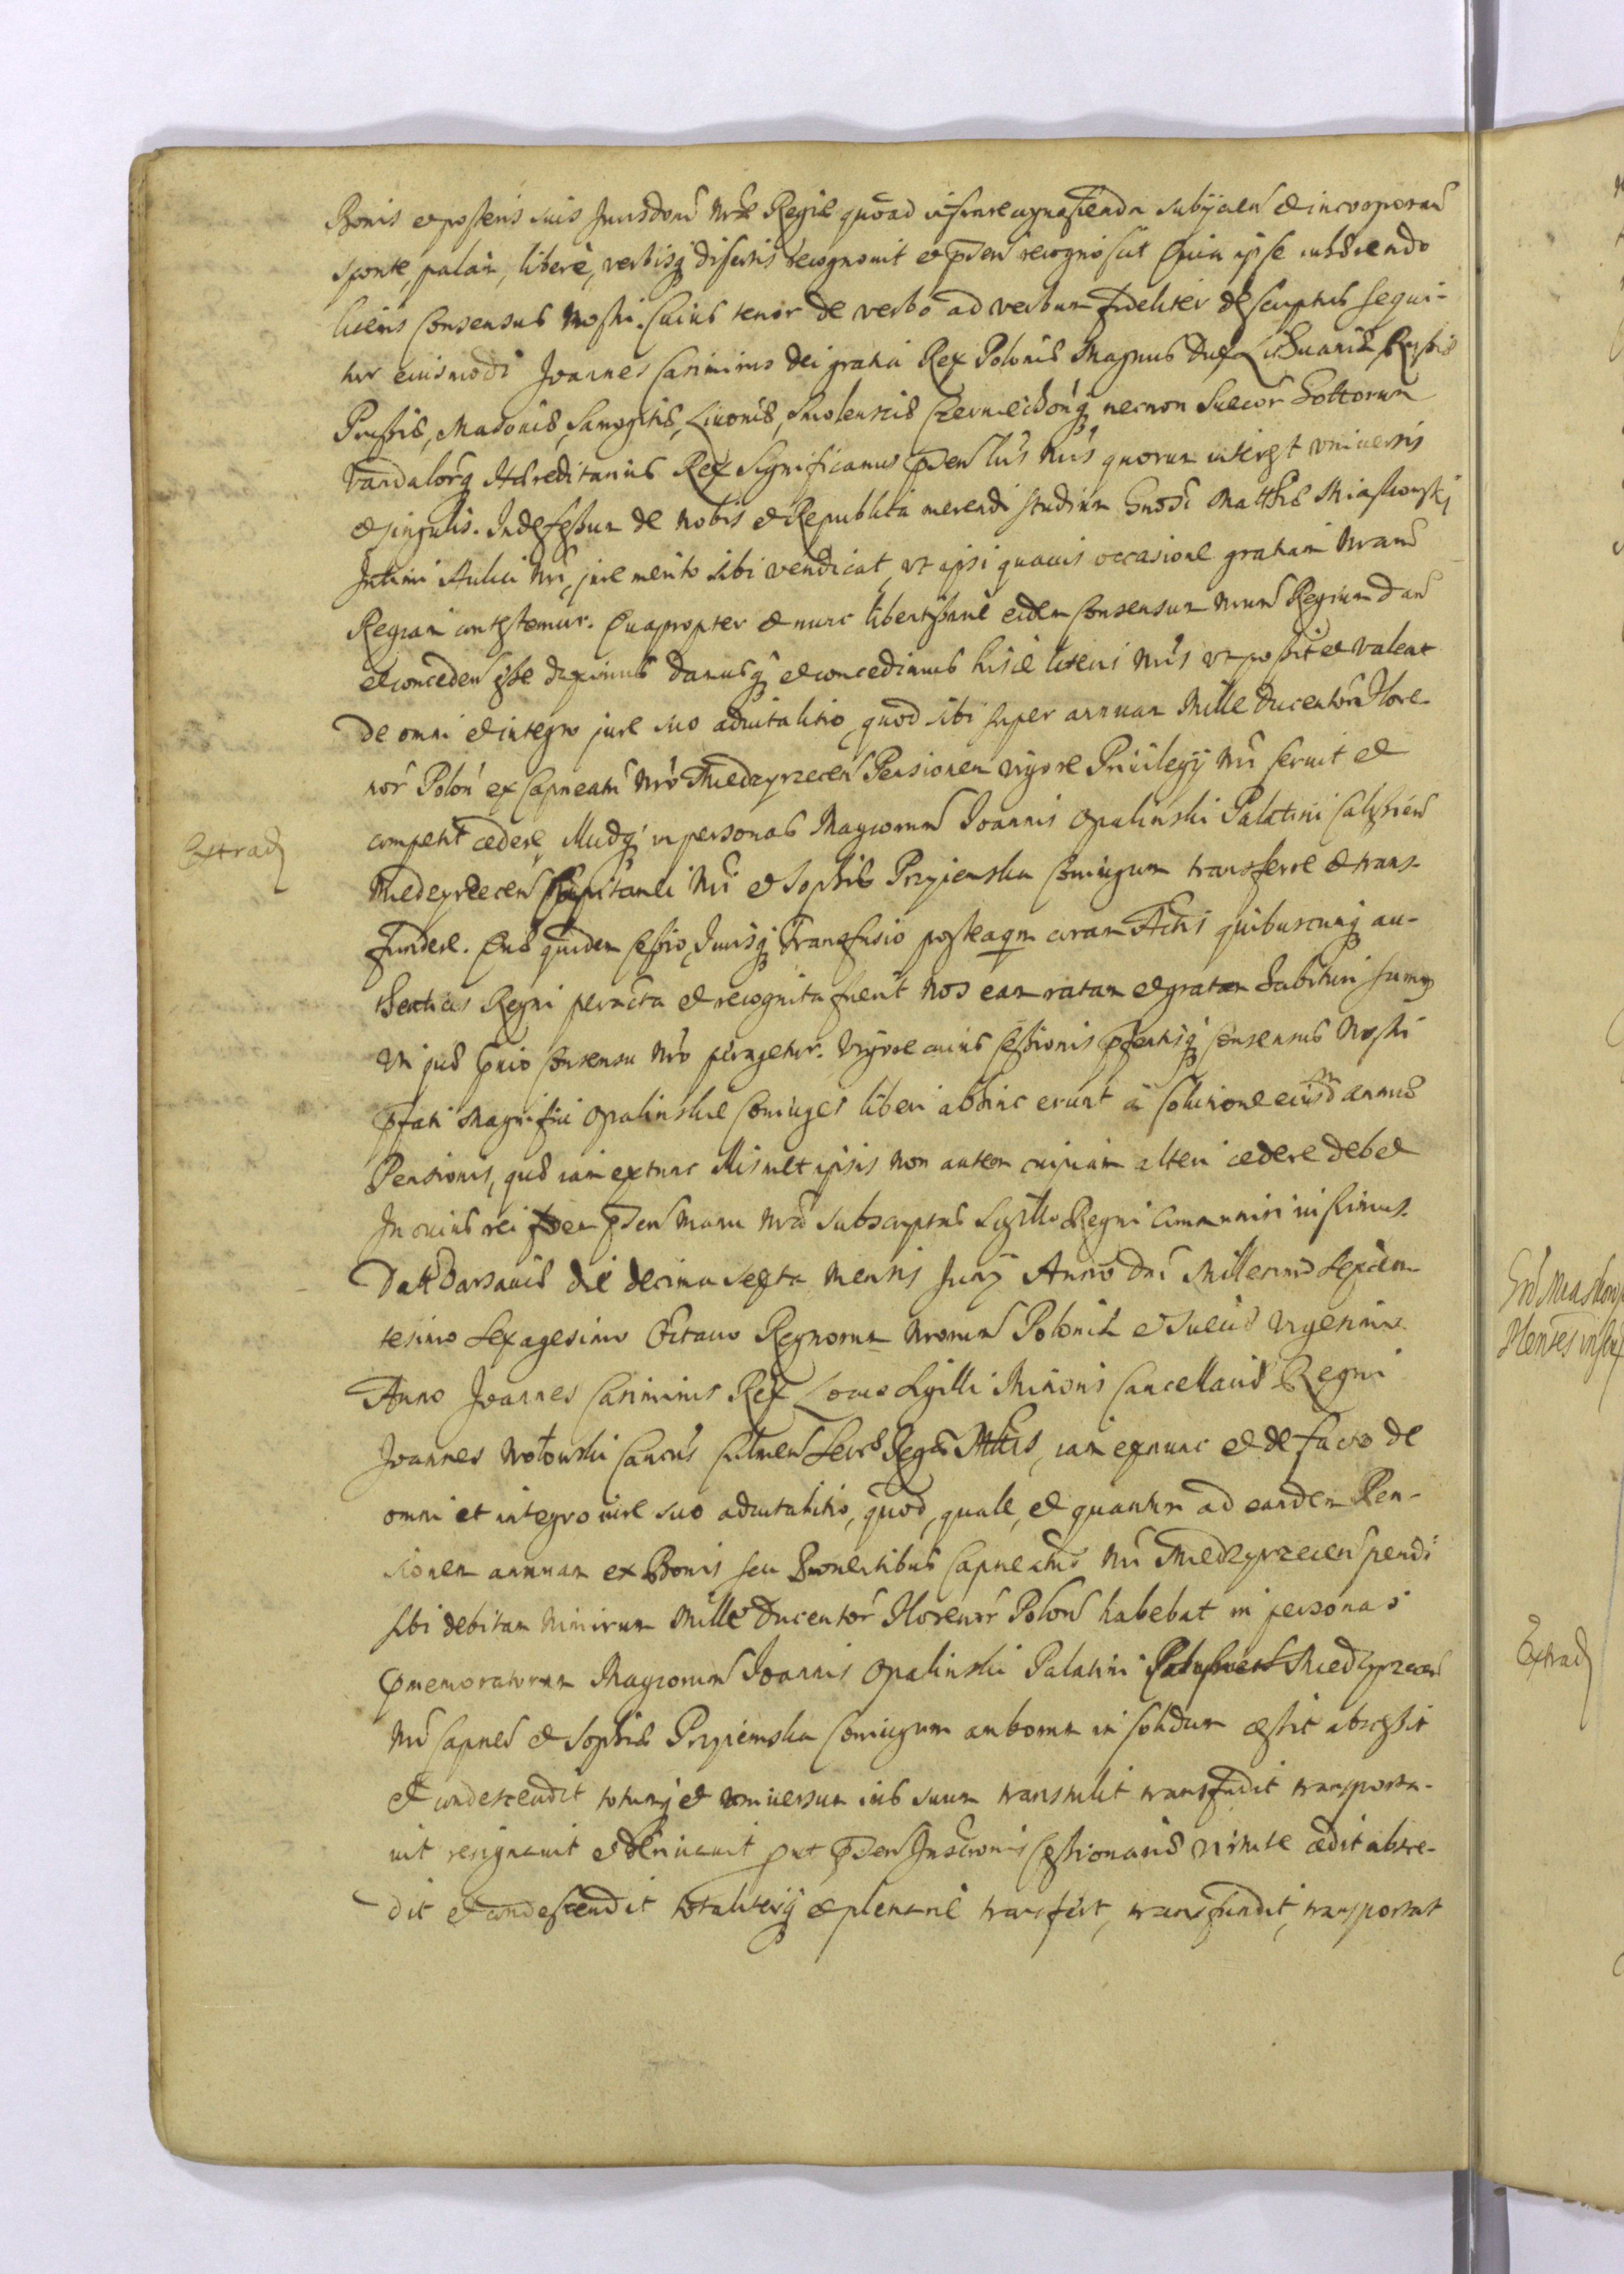 Bonis et posteris suis Jurisdoni Nrae Regiae quoad insrare cognoscenda subijcien et incorporan
sponte, palam, libere, verbisq disertis recognovit et pnsen recognoscit Quia ipse inhaerendo
literis Consensus Nostri. Cuius tenor de verbo ad verbum fideliter descriptus sequi-
tur eiusmodi Joannes Casimirus Dei gratia Rex Poloniae Magnus Dux Lithuaniae Russiae
Prussiae, Masoviae, Samogitiae, Livoniae, Smolensciae Czerniechoviaeq necnon Suecor Gottorum
Vandalorq Haereditarius Rex Significamus pnsen lris Nris quorum interest universis
et singulis. Indefessum de Nobis et Republica merendi studium Gnosi Matthiae Miaskowskj
Intimi Aulici Nri, jure merito sibi vendicat, ut ipsi quavis occasione gratiam Nram
Regiam contestemur. Quapropter et nunc libentissime eidem Consensum Nrum Regium dan
et conceden esse duximus Damusq et concedimus hisce literis Nris ut possit et valeat
de omni et integro jure suo advitalitio, quod sibi super annuam Mille Ducentorum Flore-
nor Polon ex Capneatu Nro Miedzyrzecen Pensionem vigore Privilegij Nri servit et
competit cedere Illudq in personas Magcorum Joannis Opalinski Palatini Calissien
Miedzyrzecen Capitanei Nri et Sophiae Przyiemska Coniugum transferre et trans-
fundere. Quae quidem Cessio, Jurisq Transfusio posteaqm coram Actis quibuscunq au-
thenticis Regni peracta et recognita fuerit Nos eam ratam et gratam habituri sumus
Uti jus quio Consensu Nro peragetur. Vigore cuius Cessionis pnsentisq Consensus Nostri
pfati Magnifici Opalinskie Coniuges liberi abhinc erunt a solutione eiusdem annuae
Pensionis, quae iam extunc illismet ipsis non autem cuipiam alteri cedere debet
In cuius rei fidem pnsen Manu Nra subscriptas Sigillo Regni communiri iussimus.
Datt Varsaviae die decima sexta Mensis Junij Anno Dni Millesimo Sexcen-
tesimo Sexagesimo Octavo Regnorum Nrorum Poloniae et Sueciae Vigesimo
Anno Joannes Casimirus Rex Locus Sigilli Minoris Cancellariae Regni
Joannes Wołowski Cancus Culmen Secrs Regae Mttis, iam exnunc et de facto de
omni et integro iure suo advitalitio, quod, quale, et quantum ad eandem Pen-
sionem annuam ex Bonis seu Proventibus Capneatus Nri Miedzyrzecen pendi
sibi debitam Nimirum Mille Ducentor Florenor Polon habebat in personas
pmemoratorum Magcorum Joannis Opalinski Palatini Miedzyrzecen
Nri Capnei et Sophiae Przyiemska Coniugum amborum in solidum cessit abscessit
et condescendit totumq et universum ius suum transtulit transfudit transporta-
vit resignavit et derivavit put pnsen Inscriptionis Cessionariae virtute cedit absce-
dit et condescendit totaliterq et plenarie transfert, transfundit, transportat
Extrad
Extrad